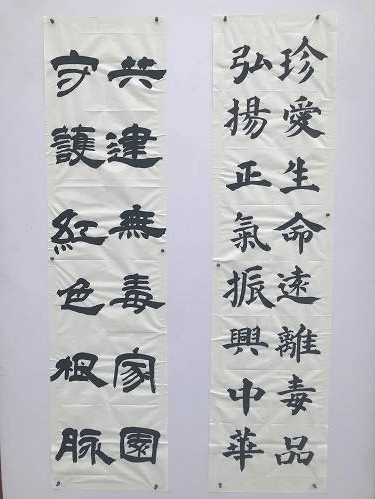 珍愛生命遠離毒品
弘揚正氣振興中華
共建無毒家園
守護紅色根脈